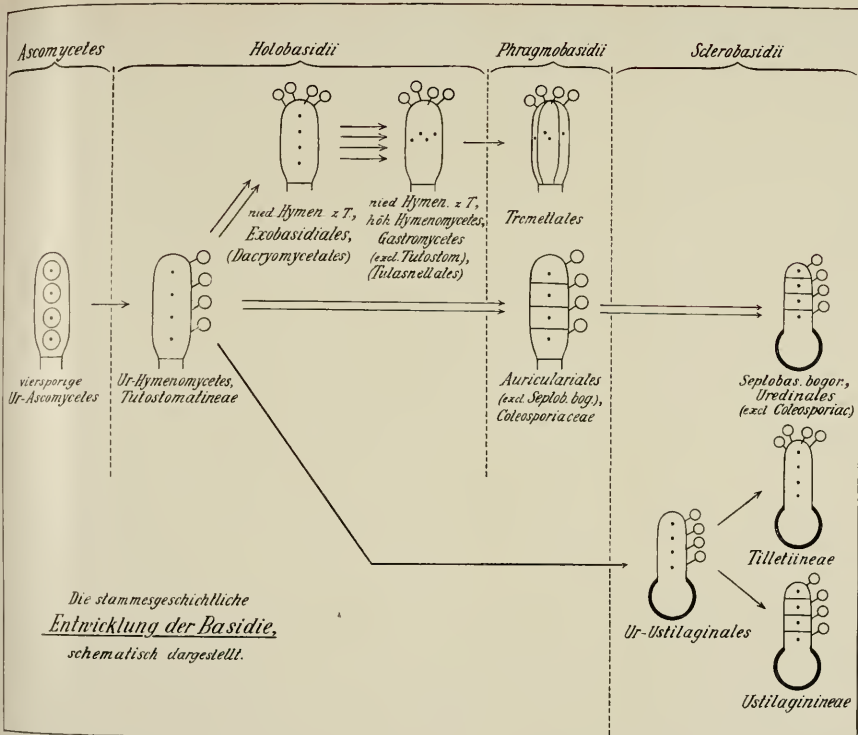 Ascomycetes
Holobasidii
Phragmobasidii
Sclerobasidii
nied. Hymen. z T,
Exobasidiales,
(Dacryomycetales)
nied Hymen. z T,
höh Hymenomycetes,
Gastromycetes
(excl. Tutostom),
(Tulasnellales)
Tremellales
viersporige
Ur-Ascomycetes
Ur-Hymenomycetes,
Tutostomatineae
Auriculariales
(excl. Septob. bog.),
Coleosporiaceae
Septobas. bogor.,
Uredinales
(excl Coleosporiac)
Tilletiineae
Ur-Ustilaginales
Ustilaginineae
Die stammesgeschichtliche
Entwicklung der Basidie,
schematisch dargestellt.